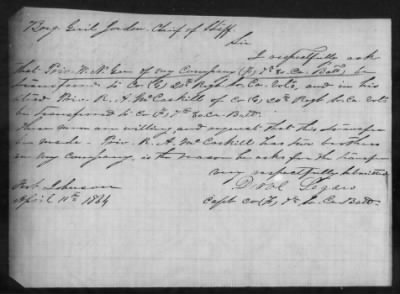 Brig Genl Jordan Chief of Staff
Sir
I respectfully ask
that Priv. W. N. Gee of my Company (F) 7th So. Ca. Batt. be
transferred to Co (G) 2d Regt So. Ca. Vols, and in his
stead Priv. R. A. McCaskill of Co (G) 2d Regt So. Ca. Vols
be transferred to Co (F) 7th So. Ca. Batt.
These men are willing, and request that this transfer
be made. Priv. R. A. McCaskill has two brothers
in my company, is the reason he asks for the transfer
very respectfully submitted
Fort Johnson
April 11th 1864
Capt Co (F) 7th So. Ca Batt.